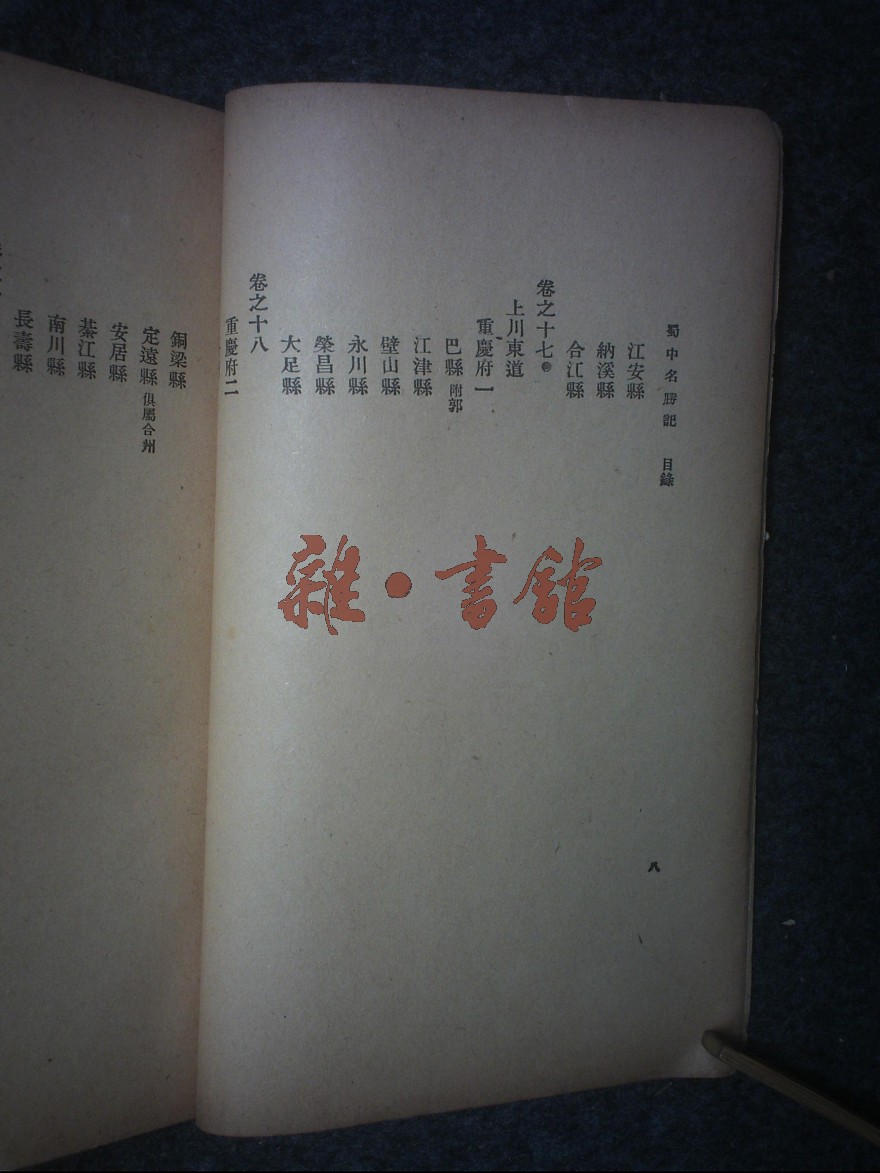 蜀中名勝記 目錄
八
江安縣
納溪縣
合江縣
卷之十七
上川東道
重慶府一
巴縣 附郭
江津縣
壁山縣
永川縣
榮昌縣
大足縣
卷之十八
重慶府二
銅梁縣
定遠縣 俱屬合州
安居縣
綦江縣
南川縣
長壽縣
雜·書館